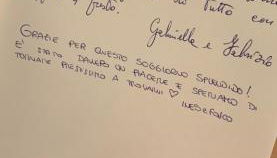 fresto.
tutto con
Gabriella e Fabrizio
GRAZIE PER QUESTO SOGGIORNO SPLENDIDO!
E' STATO DAVVERO UN PIACERE E SPERIAMO DI
TORNARE PRESTISSIMO A TROVARVI ♡